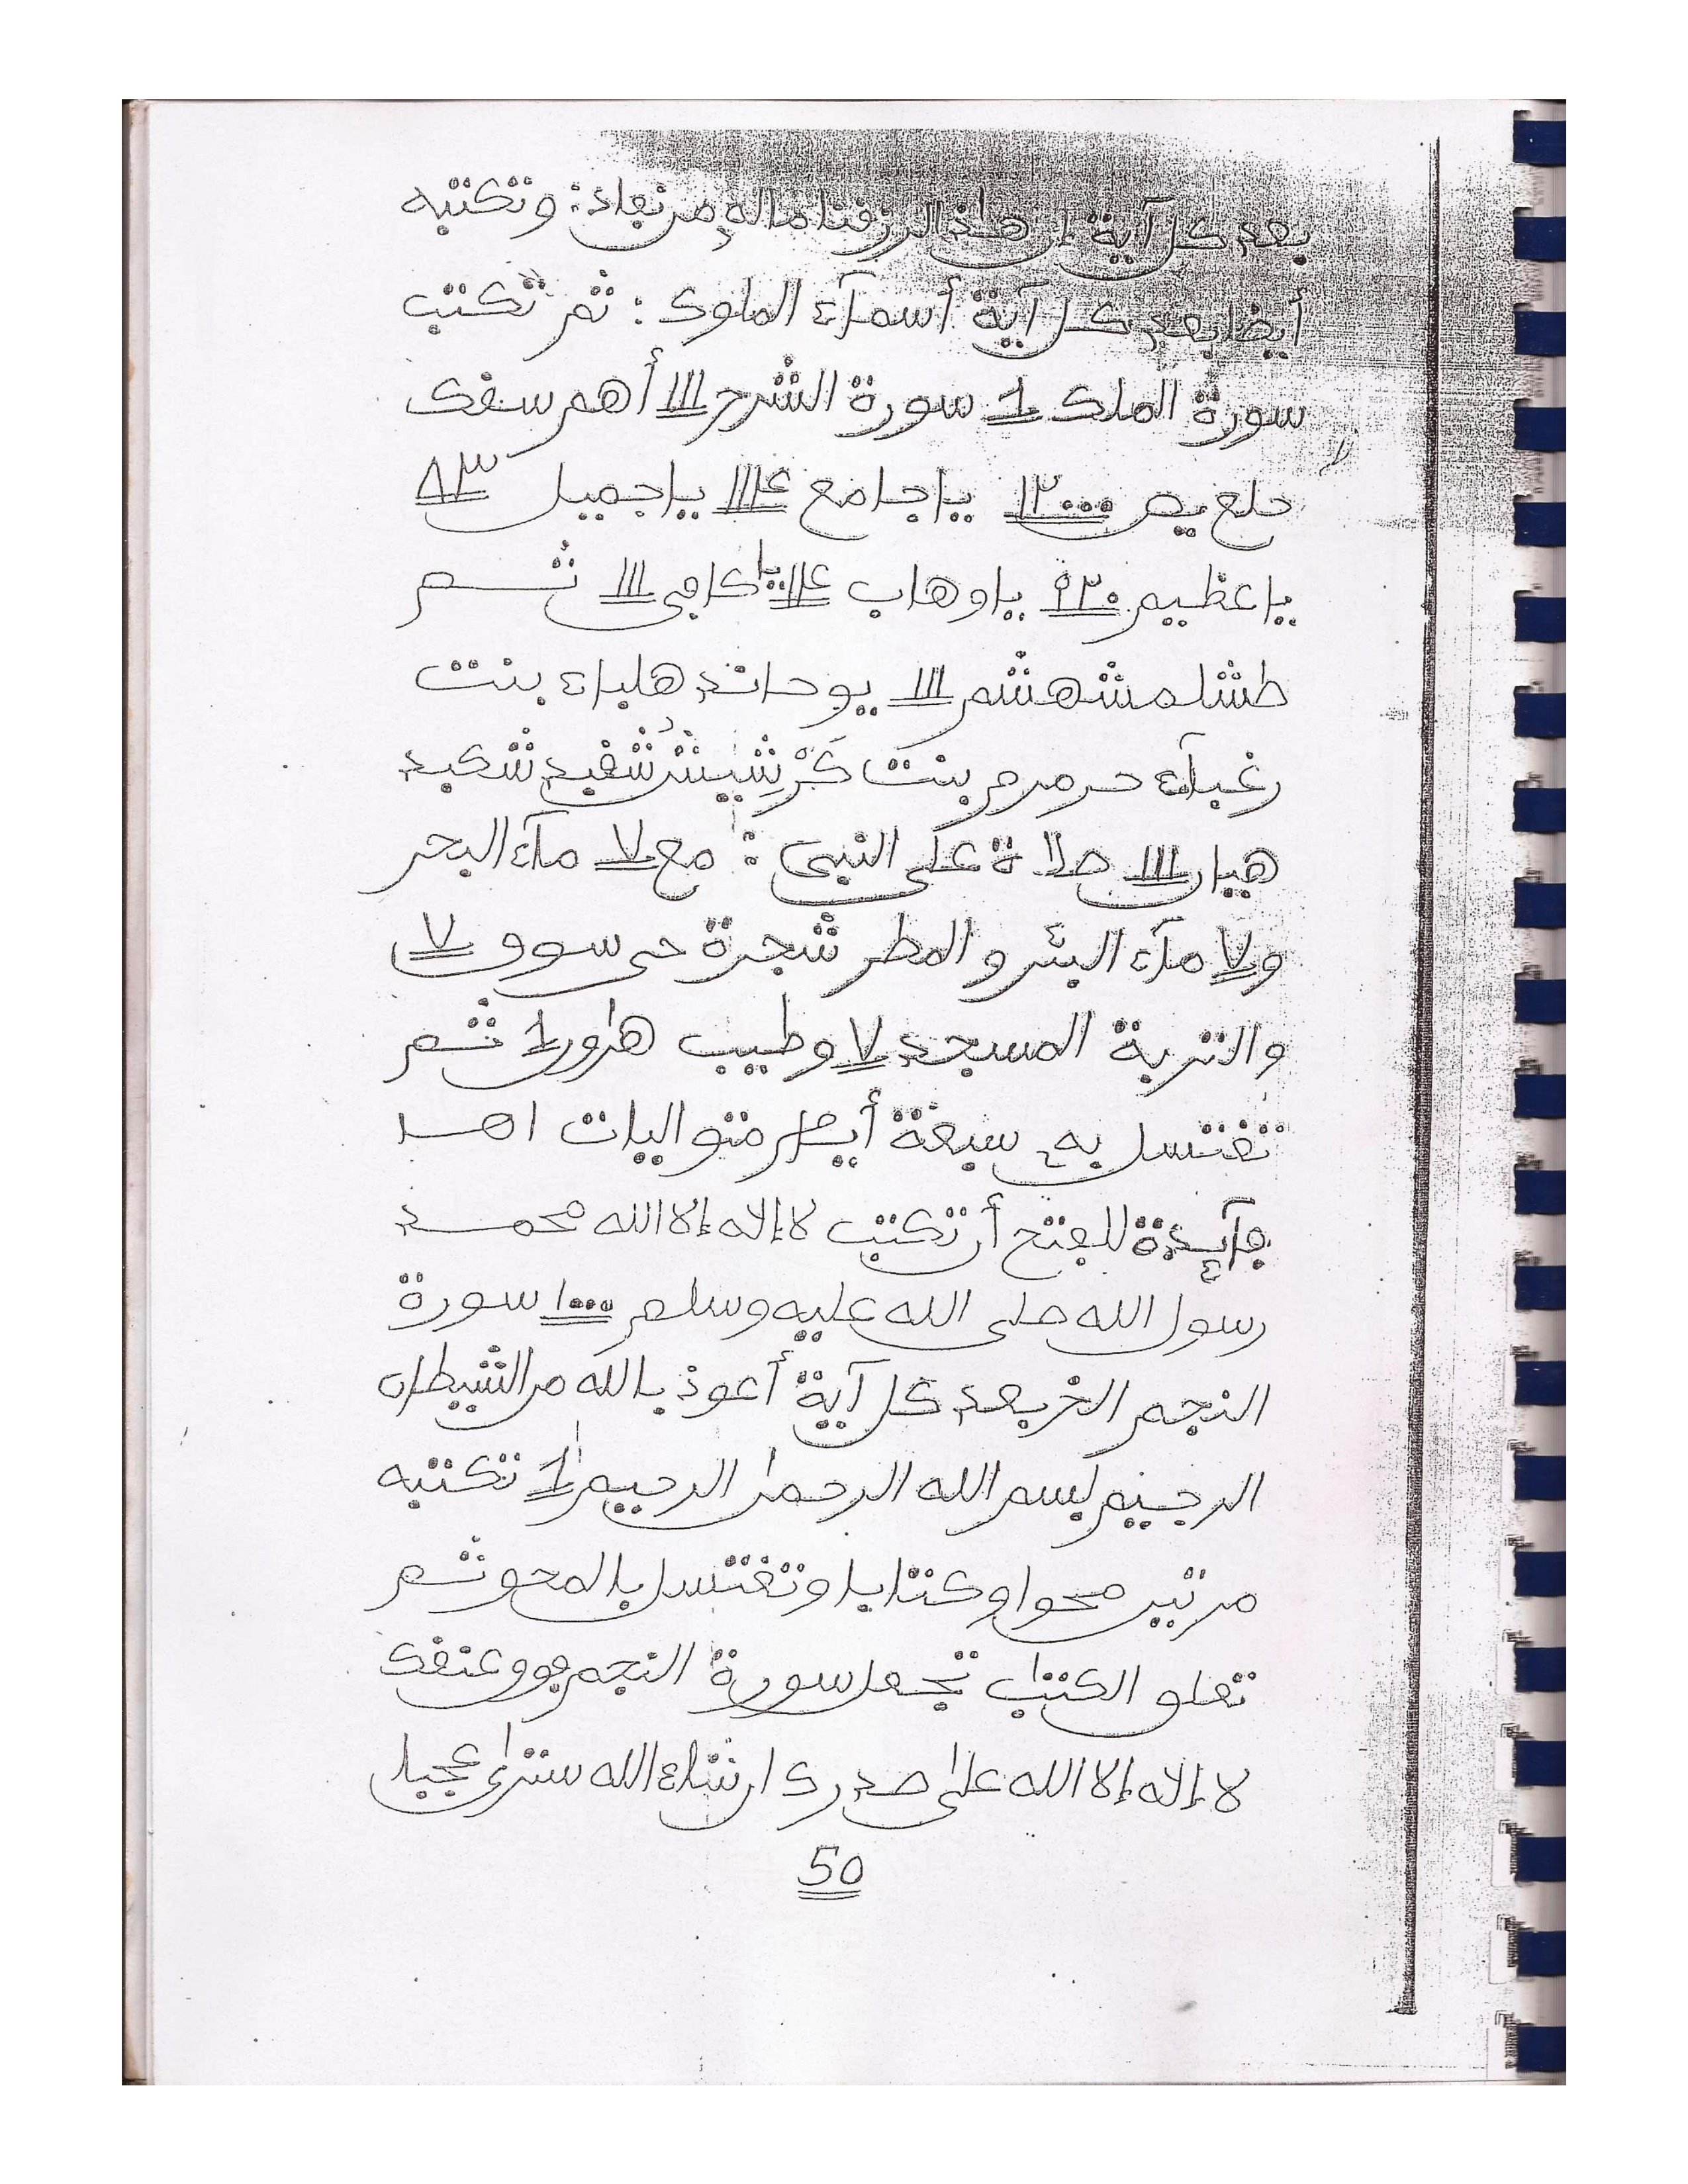 بعد كل آية إن هاذا لرزقنا ماله من نفاد: وتكتبه
أيضا بعد كل آية أسمآء الملوك: ثم تكتب
سورة الملك 1 سورة الشرح ااا أهم سفك
حلع يص ١٢٠٠٠ يا جامع ١١٤ يا جميل ٨٣
يا عظيم ٩٢٠ يا وهاب ١٤ يا كافي ااا ثم
طشلمشهشم ااا يوحاند هلباء بنت
رغبآء حرمرم بنت كرشيش شقيد شكيد
هيان ااا صلاة على النبي: مع ٧ مآء البحر
و٧ مآء البئر والمطر شجرة حى سوو ٧
والتربة المسجد ٧ وطيب هرور 1 ثم
تغتسل به سبعة أيام متواليات اهـ
فآيدة للفتح أن تكتب لا إله إلا الله محمد
رسول الله صلى الله عليه وسلم ١٠٠٠ سورة
النجم الخ بعد كل آية أعوذ بالله من الشيطان
الرجيم بسم الله الرحمن الرحيم 1 تكتبه
مرتين محوا وكتابا وتغتسل بالمحو ثم
تعلو الكتاب تجعل سورة النجم فوو عنقك
لا إله إلا الله على صدرك ان شاء الله سترى عجبا
50